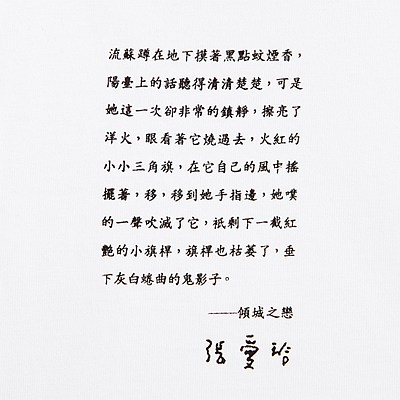 流蘇蹲在地下摸著黑點蚊煙香，
陽臺上的話聽得清清楚楚，可是
她這一次卻非常的鎮靜，擦亮了
洋火，眼看著它燒過去，火紅的
小小三角旗，在它自己的風中搖
擺著，移，移到她手指邊，她噗
的一聲吹滅了它，衹剩下一截紅
艷的小旗桿，旗桿也枯萎了，垂
下灰白蜷曲的鬼影子。
——傾城之戀
張愛玲